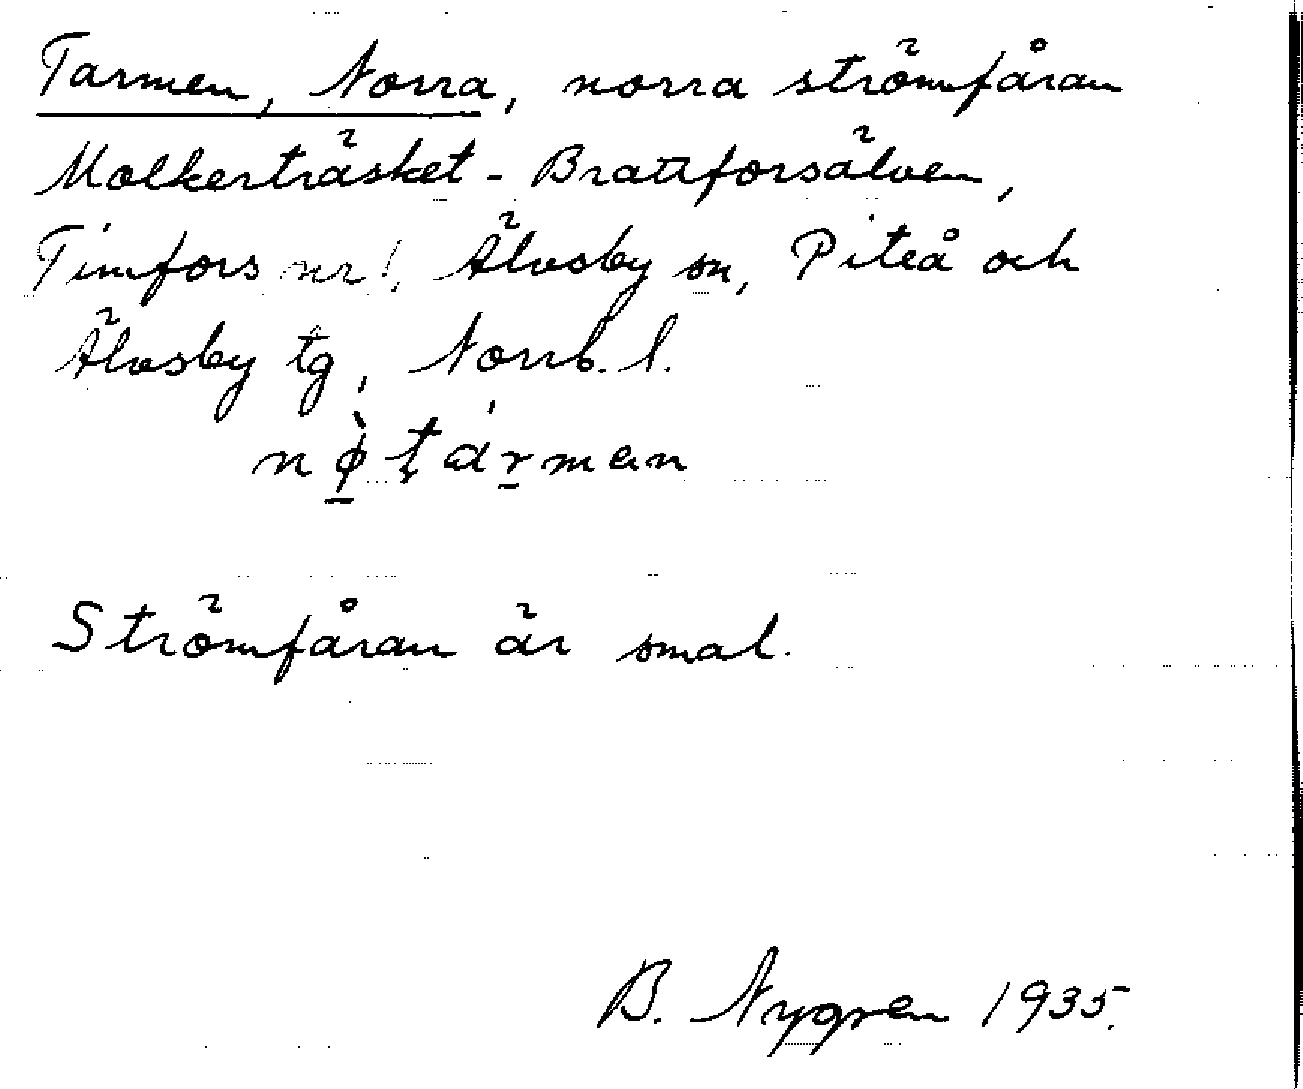 Tarmen, Norra, norra strömfåran
Molkerträsket - Brattforsälven,
Timfors nr 1, Älvsby sn, Piteå och
Älvsby tg, Norrb. l.
nø̀ṭármen
Strömfåran är smal.
B. Nygren 1935.